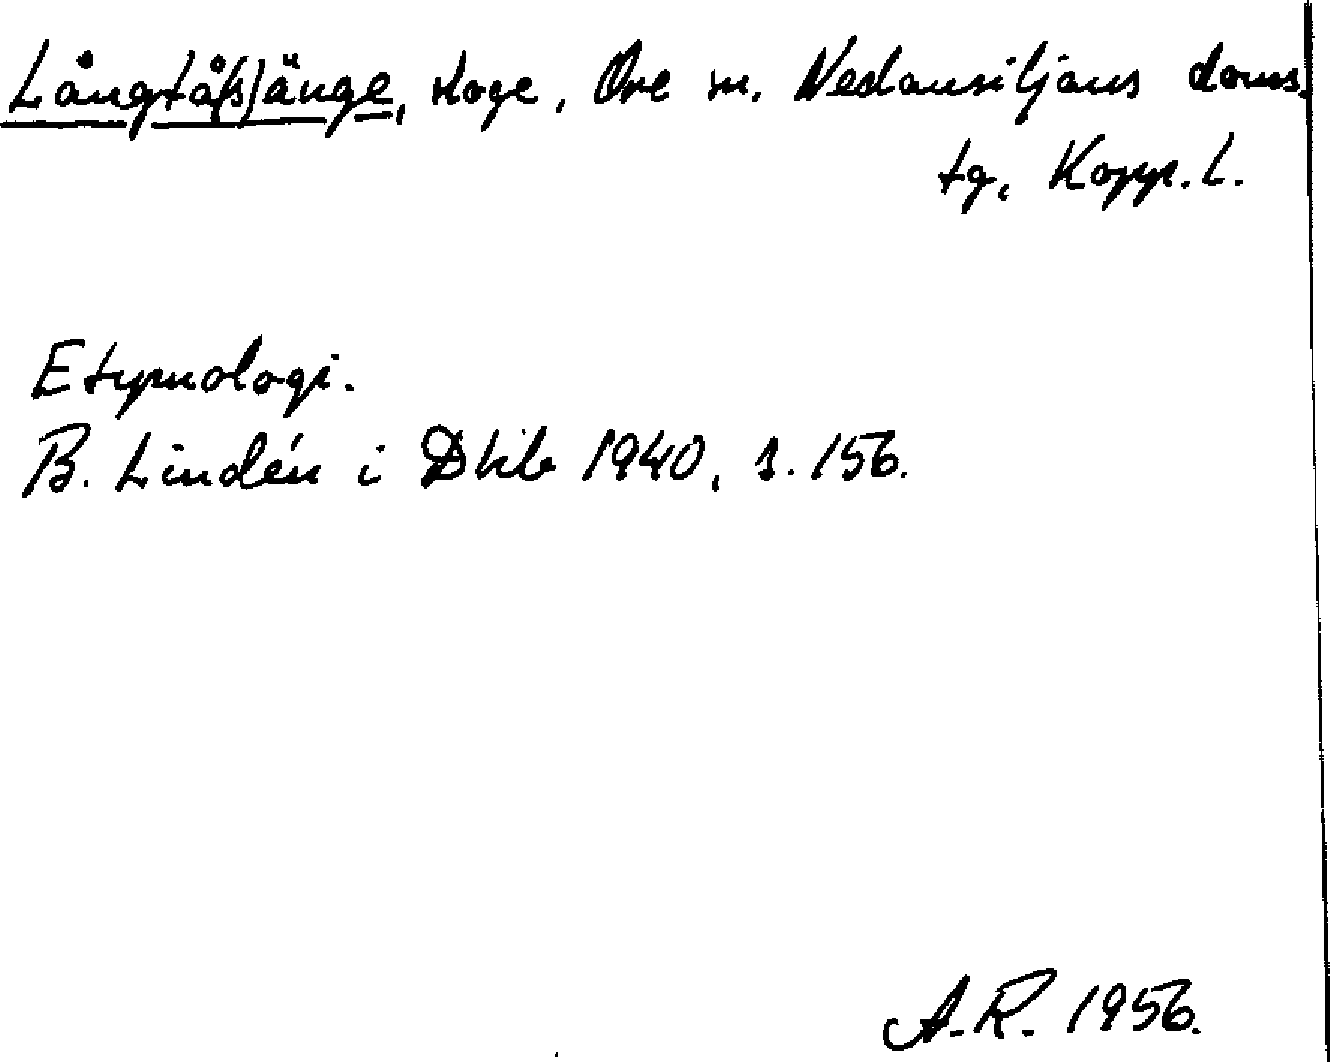 Långtå(s)änge, äoge, Ore sn. Nedansiljans doms.
tg, Kopp. l.
Etymologi.
B. Lindén i Dhb 1940, s. 156.
A.R. 1956.